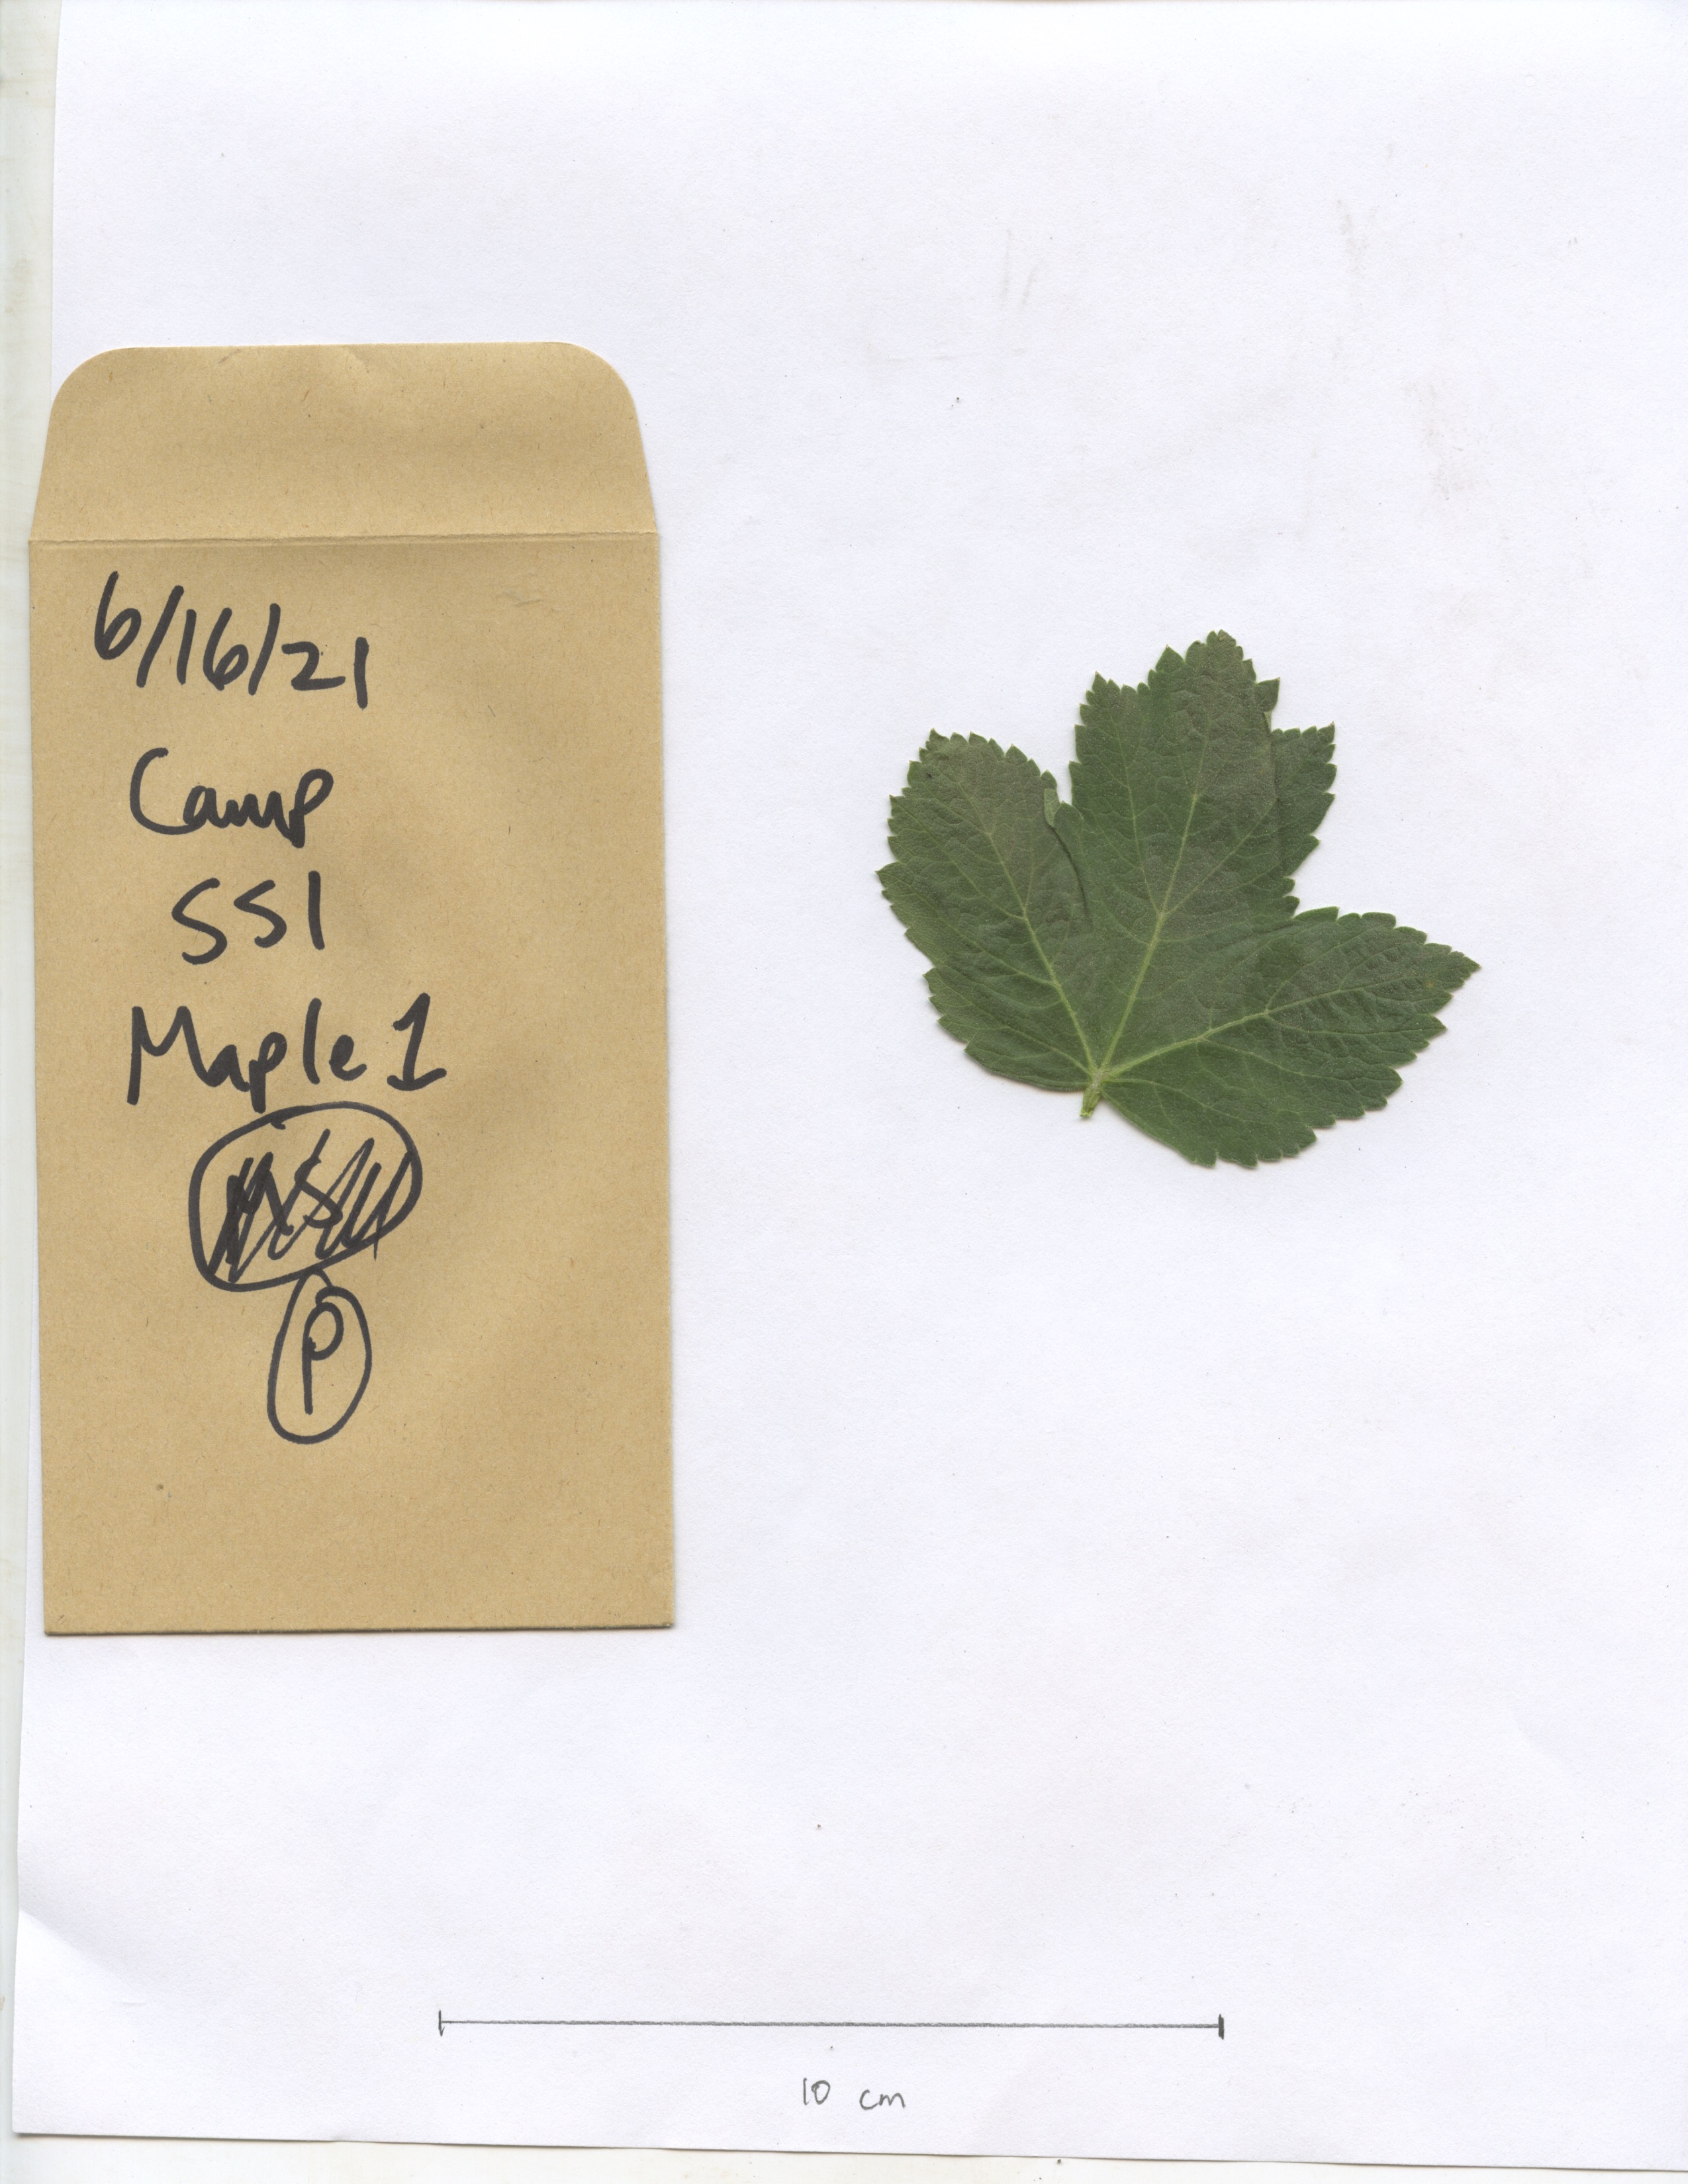 6/16/21
Camp
SS1
Maple 1
P
10 cm